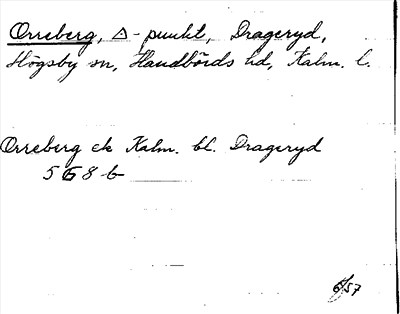 Orreberg, △-punkt, Drageryd,
Högsby sn, Handbörds hd, Kalm. l.
Orreberg ek Kalm. bl. Drageryd
568 b
6/57